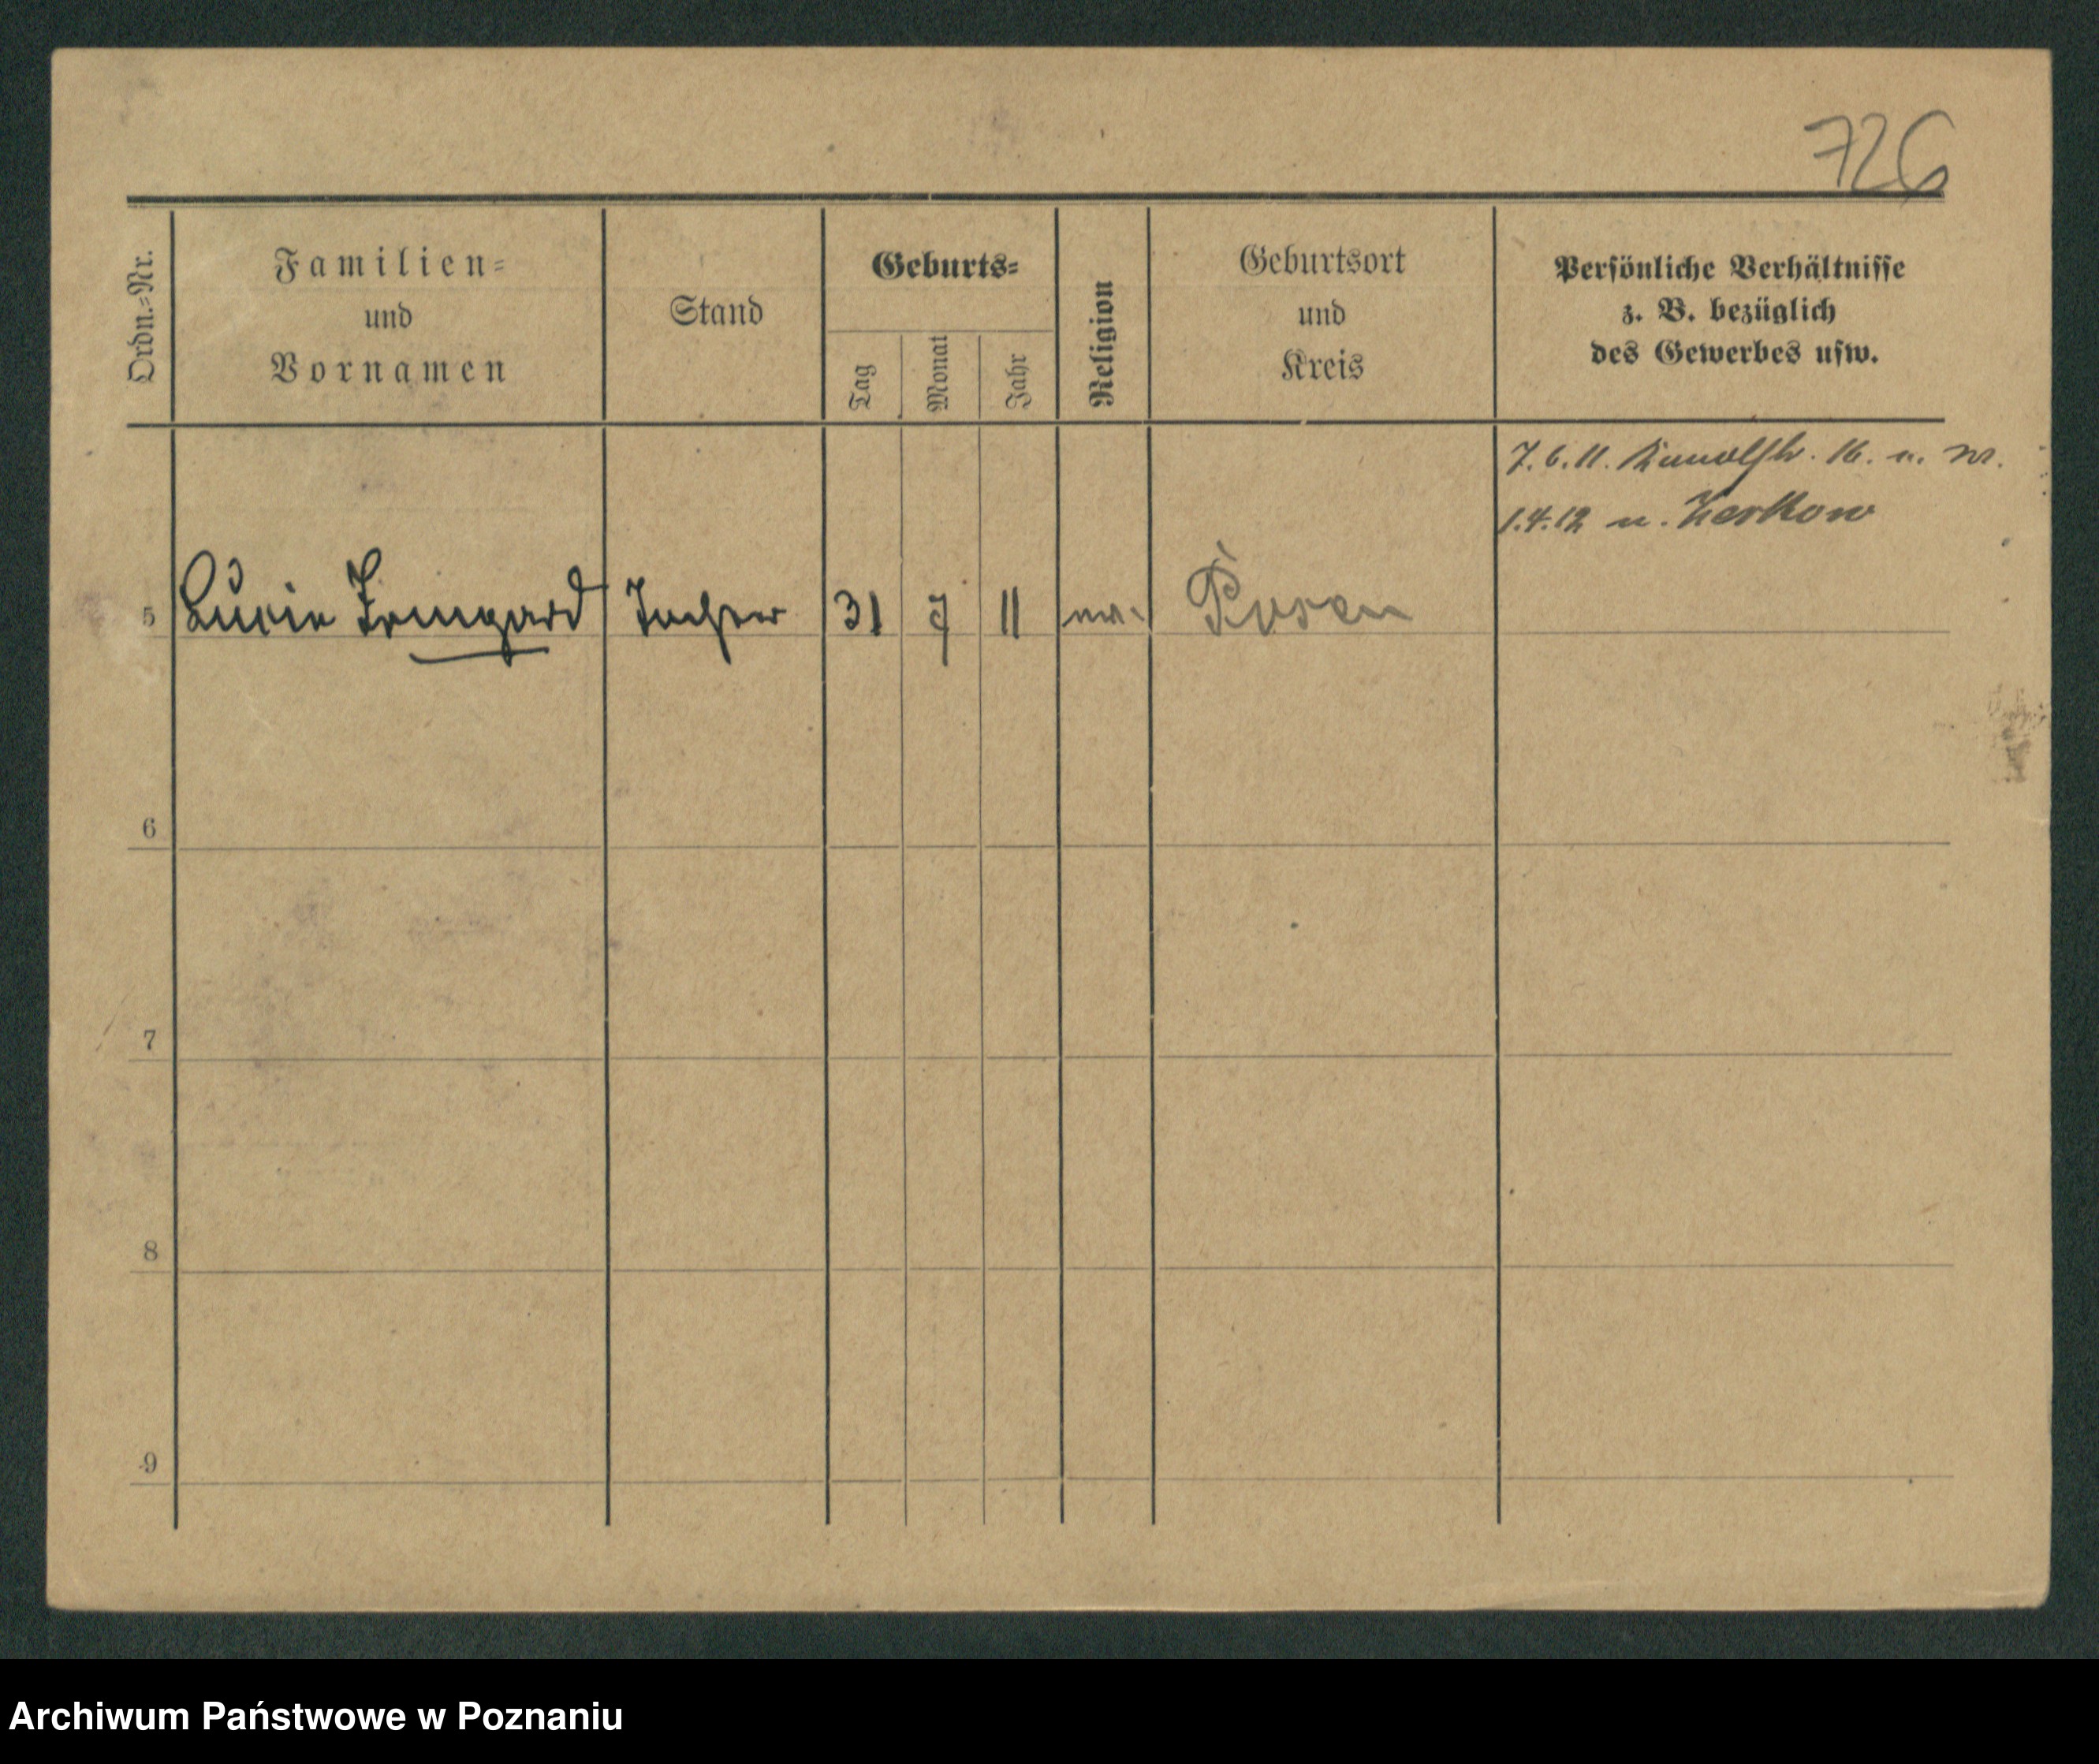 726
Ordn.-Nr.
Familien-
und
Vornamen
Stand
Geburts-
Tag
Monat
Jahr
Religion
Geburtsort
und
Kreis
Persönliche Verhältnisse
z. B. bezüglich
des Gewerbes usw.
7.6.11. 16. n. W.
1.4.12 n. Zerkow
5 Lucie Irmgard Tochter 31 7 11 ev. Posen
6
7
8
9
Archiwum Państwowe w Poznaniu